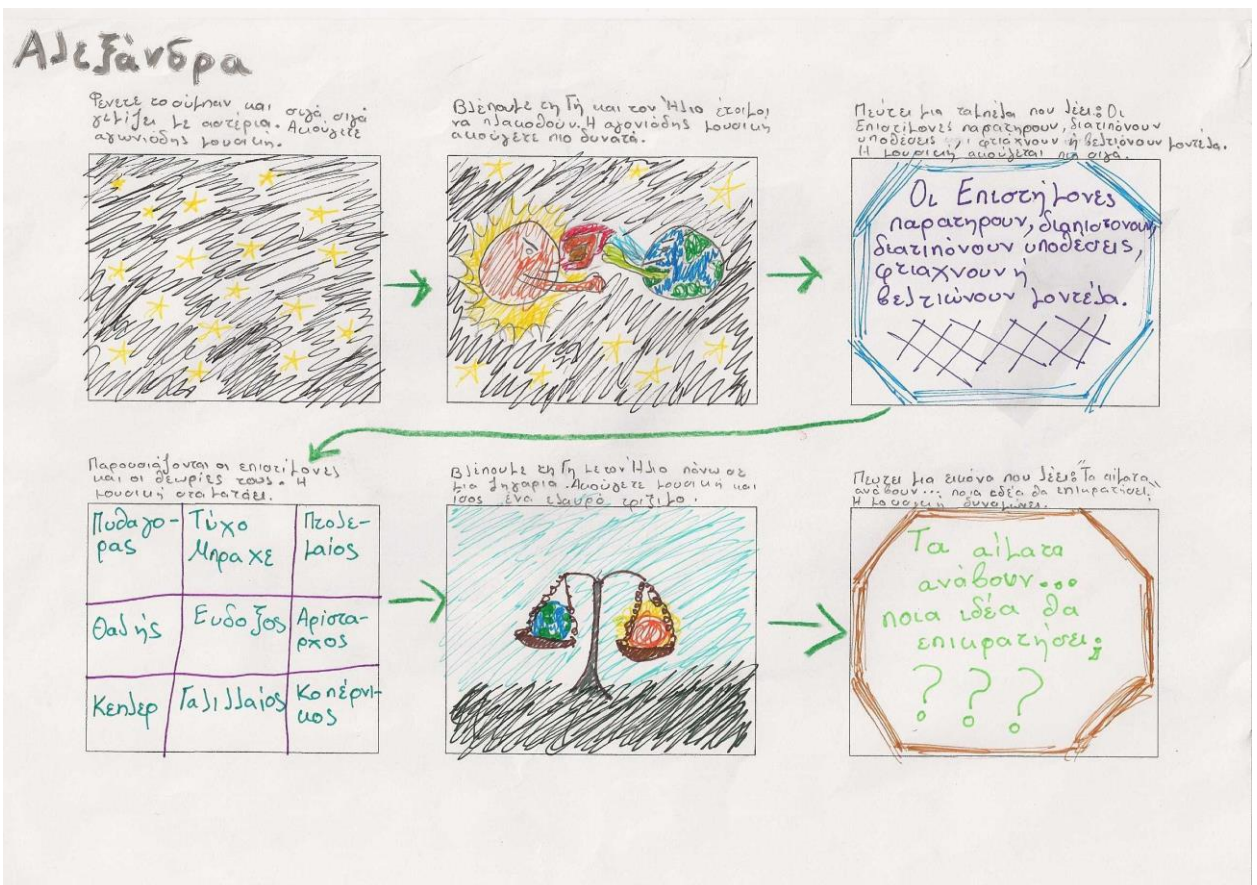 Αλεξάνδρα
Φένετε το σύμπαν και σιγά σιγά
γεμίζει με αστέρια. Ακούγετε
αγωνιόδης μουσική.
Βλέπουμε τη Γή και τον Ήλιο έτοιμοι
να πλακοθούν. Η αγονιόδης μουσική
ακούγετε πιο δυνατά.
Πεύτει μια ταμπέλα που λέει: Οι
Επιστίμονες παρατηρουν, διατιπόνουν
υποθέσεις φτιάχνουν ή βελτιόνουν μοντέλα.
Η μουσική ακούγεται πιο σιγά.
Οι Επιστήμονες
παρατηρουν, διαπιστονουν,
διατιπόνουν υποθέσεις,
φτιαχνουν ή
βελτιώνουν μοντέλα.
Παρουσιάζονται οι επιστίμονες
και οι θεωρίες τους. Η
μουσική σταματάει.
Πυθαγο-
ρας
Τύχο
Μπραχε
Πτολε-
μαίος
Θαλής
Ευδοξος
Αρίστα-
ρχος
Κεπλερ
Γαλιλλαίος
Κοπέρνι-
κος
Βλέπουμε τη Γη με τον Ήλιο πάνω σε
μια ζηγαρια. Ακούγετε μουσική και
ίσος ένα ελαυρό τριζιμο.
Πεωτει μια εικόνα που λέει: "Τα αίματα
ανάβουν... ποια ιδέα θα επικρατήσει"
Η μουσική δυναμώνει.
Τα αίματα
ανάβουν...
ποια ιδέα θα
επικρατήσει;
? ? ?